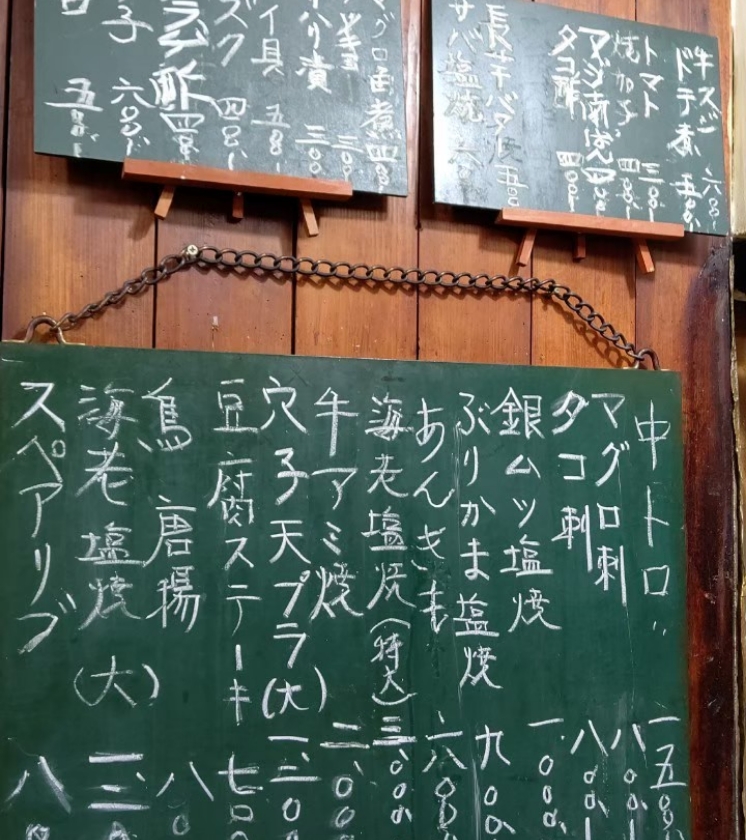 牛スジ 六〇〇
ドテ煮 五〇〇
トマト 三〇〇
焼ナス 四〇〇
アジ南ばん 四〇〇
タコ酢 四〇〇
長芋バター 五〇〇
サバ塩焼 六〇〇
マグロ 煮 四〇〇
三〇〇
漬 三〇〇
具 五〇〇
ズク 四〇〇
酢 四〇〇
子 六〇〇
五〇〇
中トロ〃 一五〇〇
マグロ刺 八〇〇
タコ刺 八〇〇
銀ムツ塩焼 一、〇〇〇
ぶりかま塩焼 九〇〇
あんきも 六〇〇
海老塩焼(特大) 三、〇〇〇
牛アミ焼 二、〇〇〇
穴子天プラ(大) 一三〇
豆腐ステーキ 七〇
鳥唐揚 八〇
海老塩焼(大)
スペアリブ 八